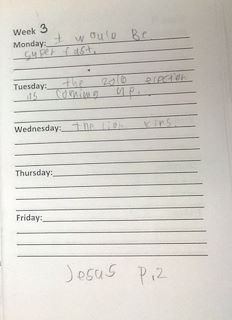 Week 3
Monday: I would Be
super fast.
Tuesday: the 2016 election
is coming up.
Wednesday: the lion king.
Thursday:
Friday:
Jesus P.2